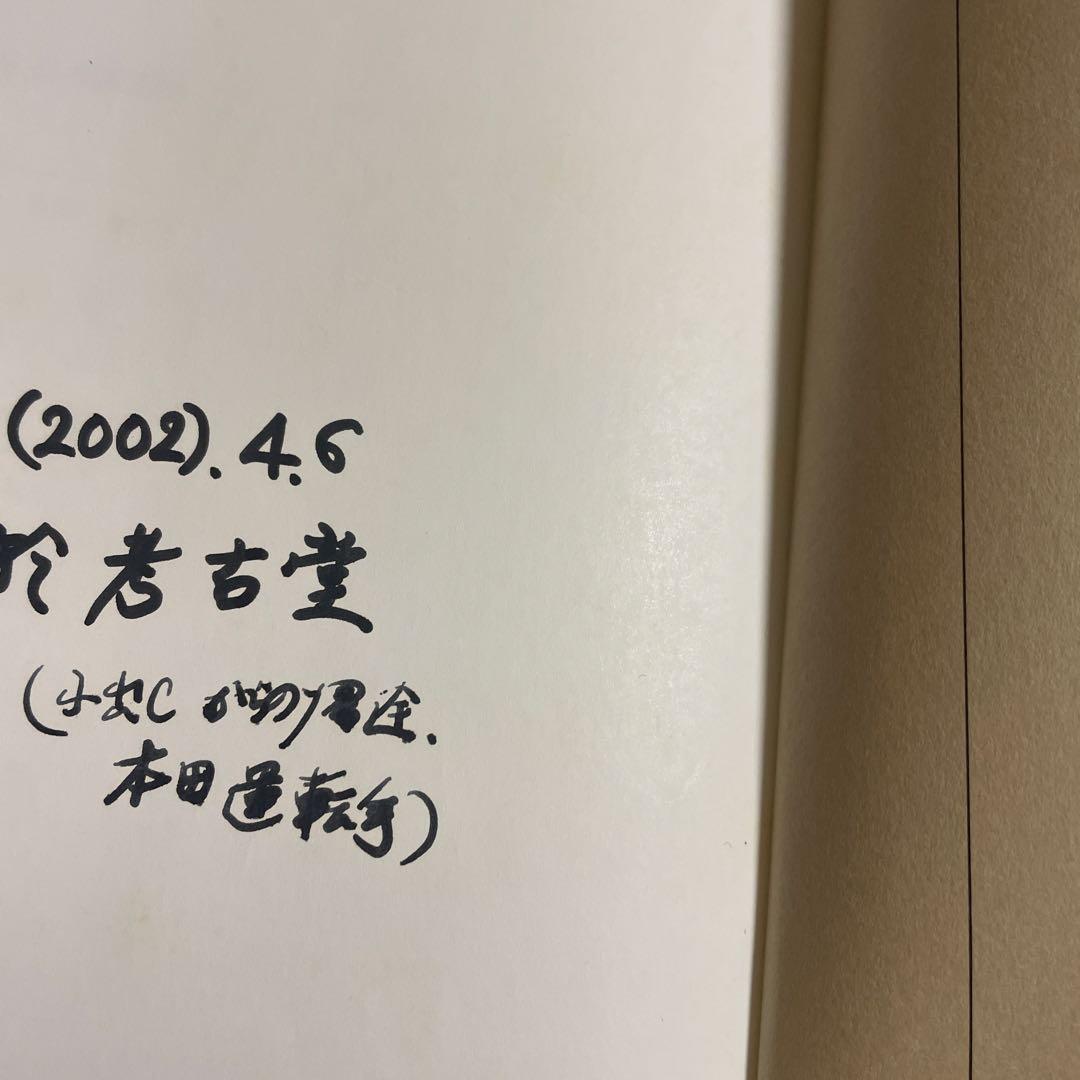 (2002).4.6
於考古堂
(小出Cからの帰途.
本田運転手)